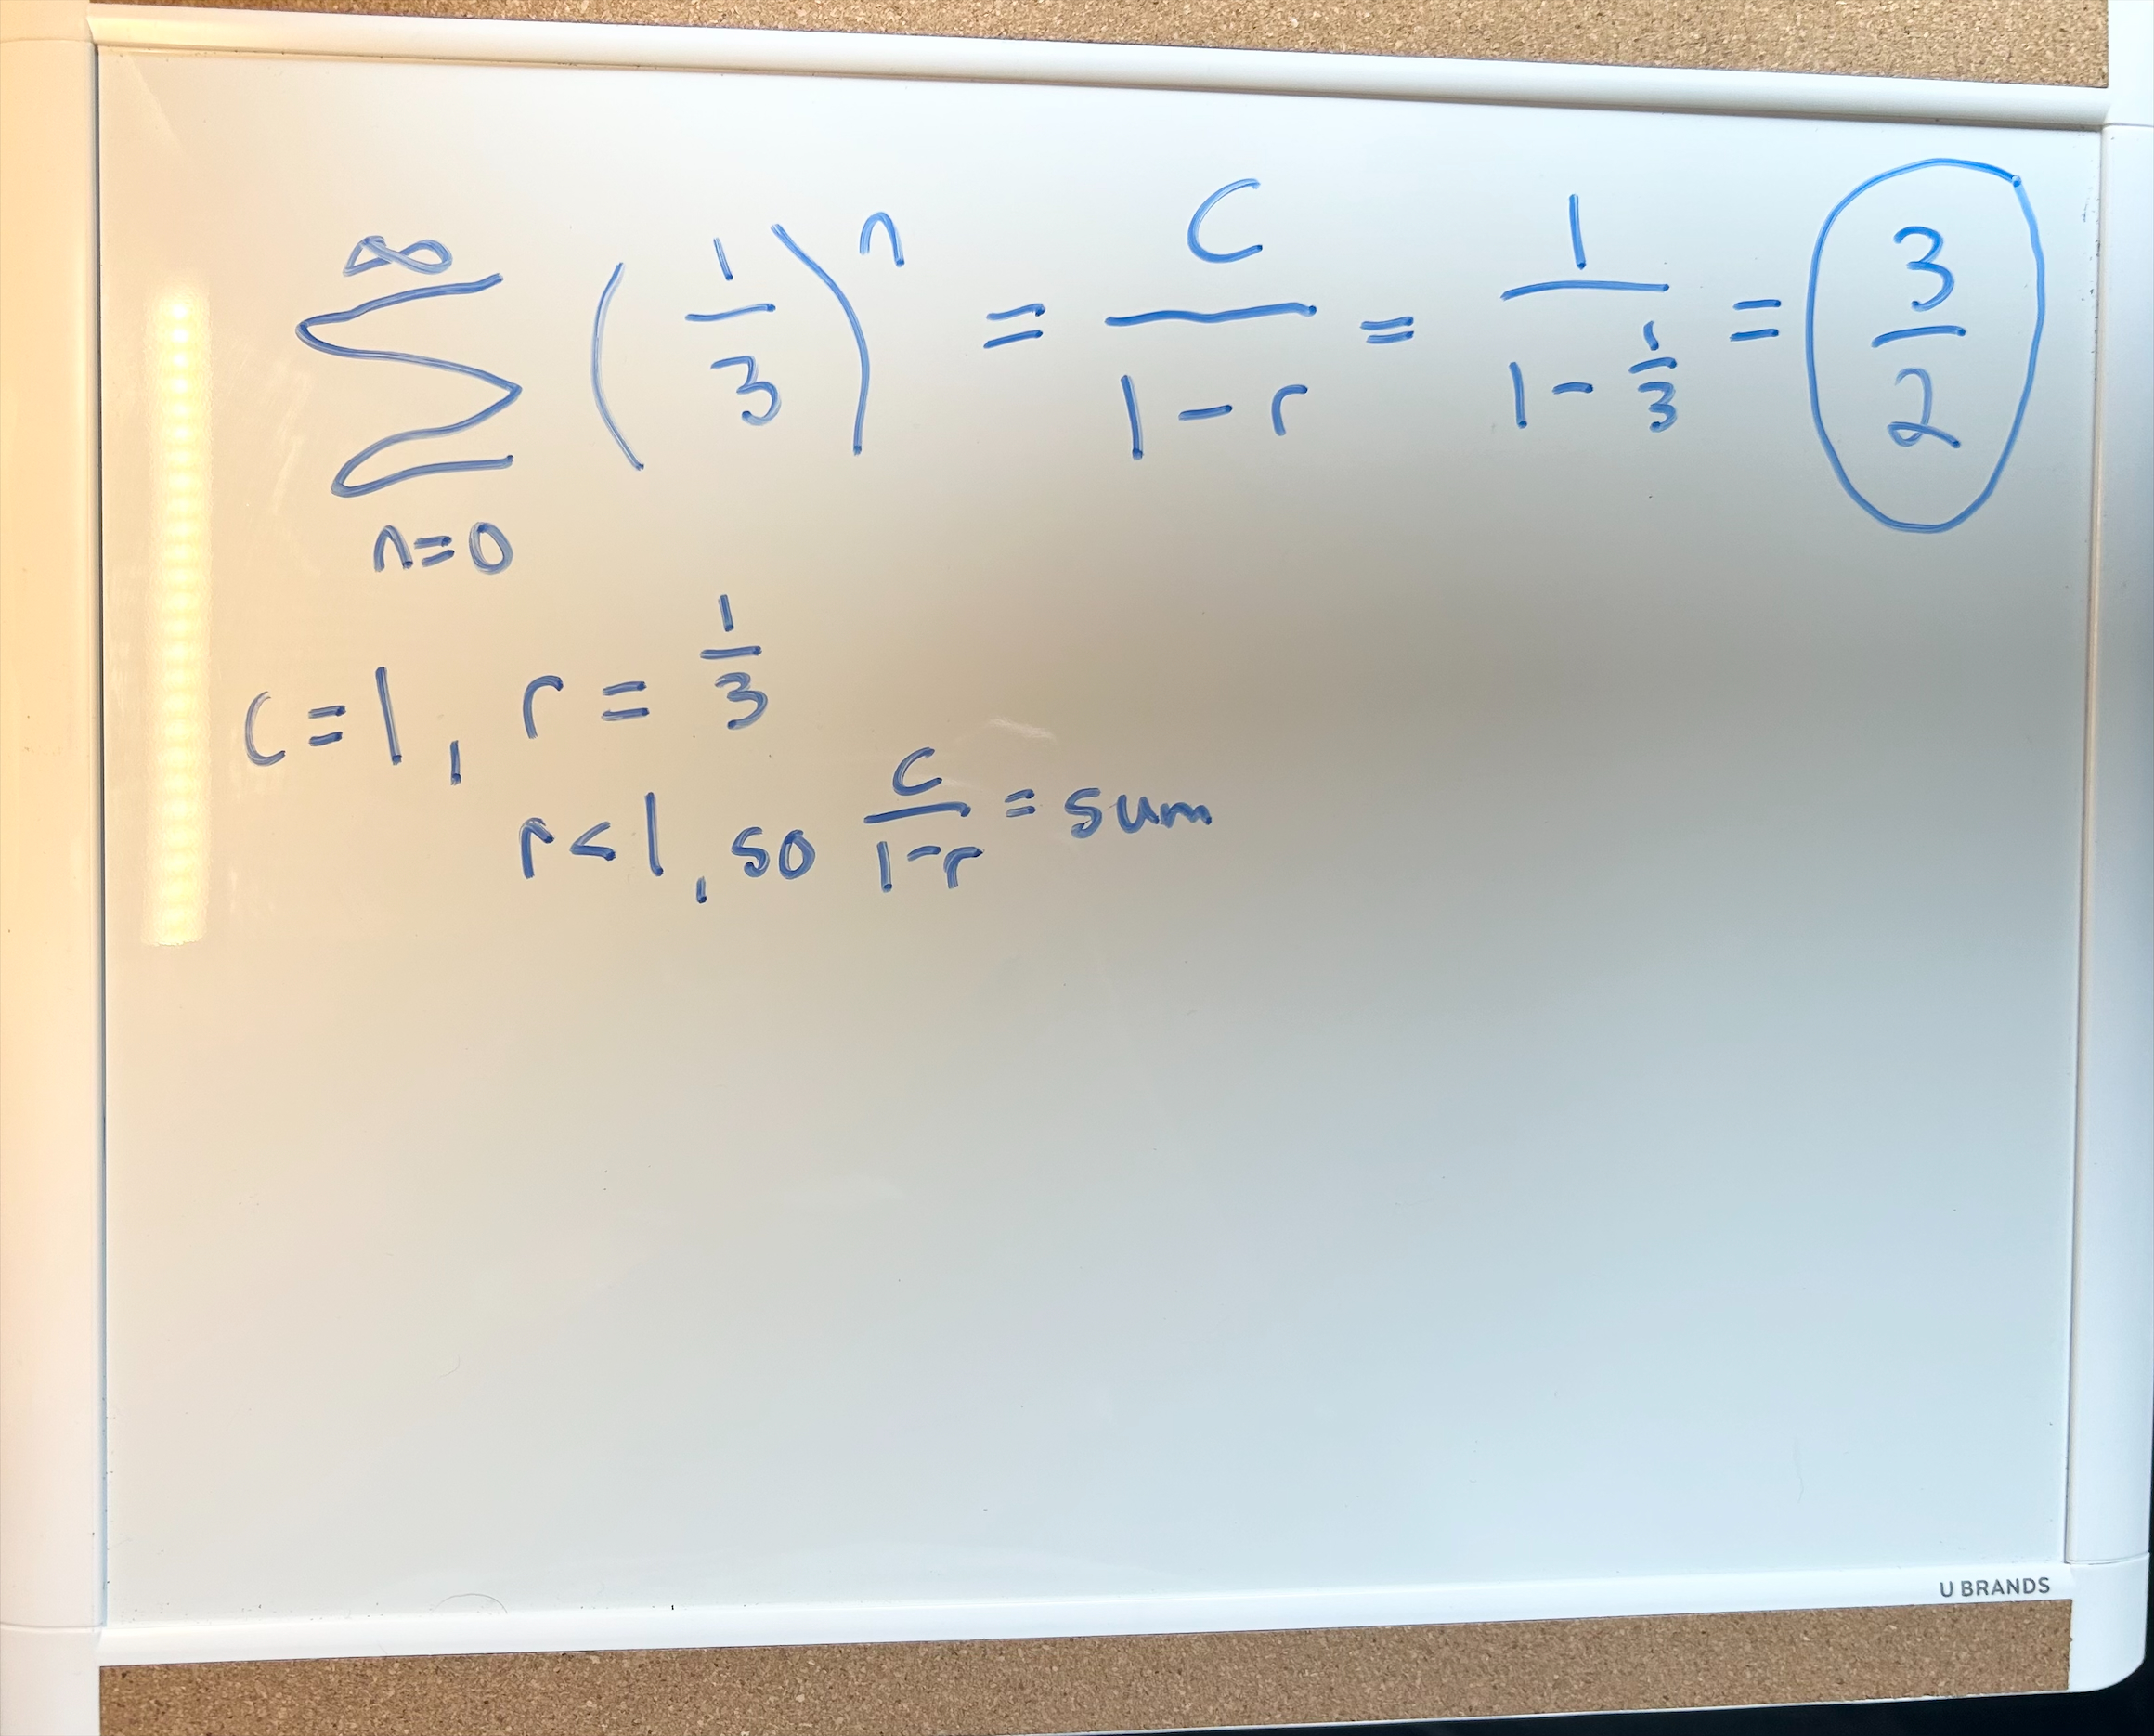 ∞
∑ (1/3)ⁿ = C/(1-r) = 1/(1-1/3) = 3/2
n=0
C=1, r=1/3
r<1, so C/(1-r) = sum
U BRANDS